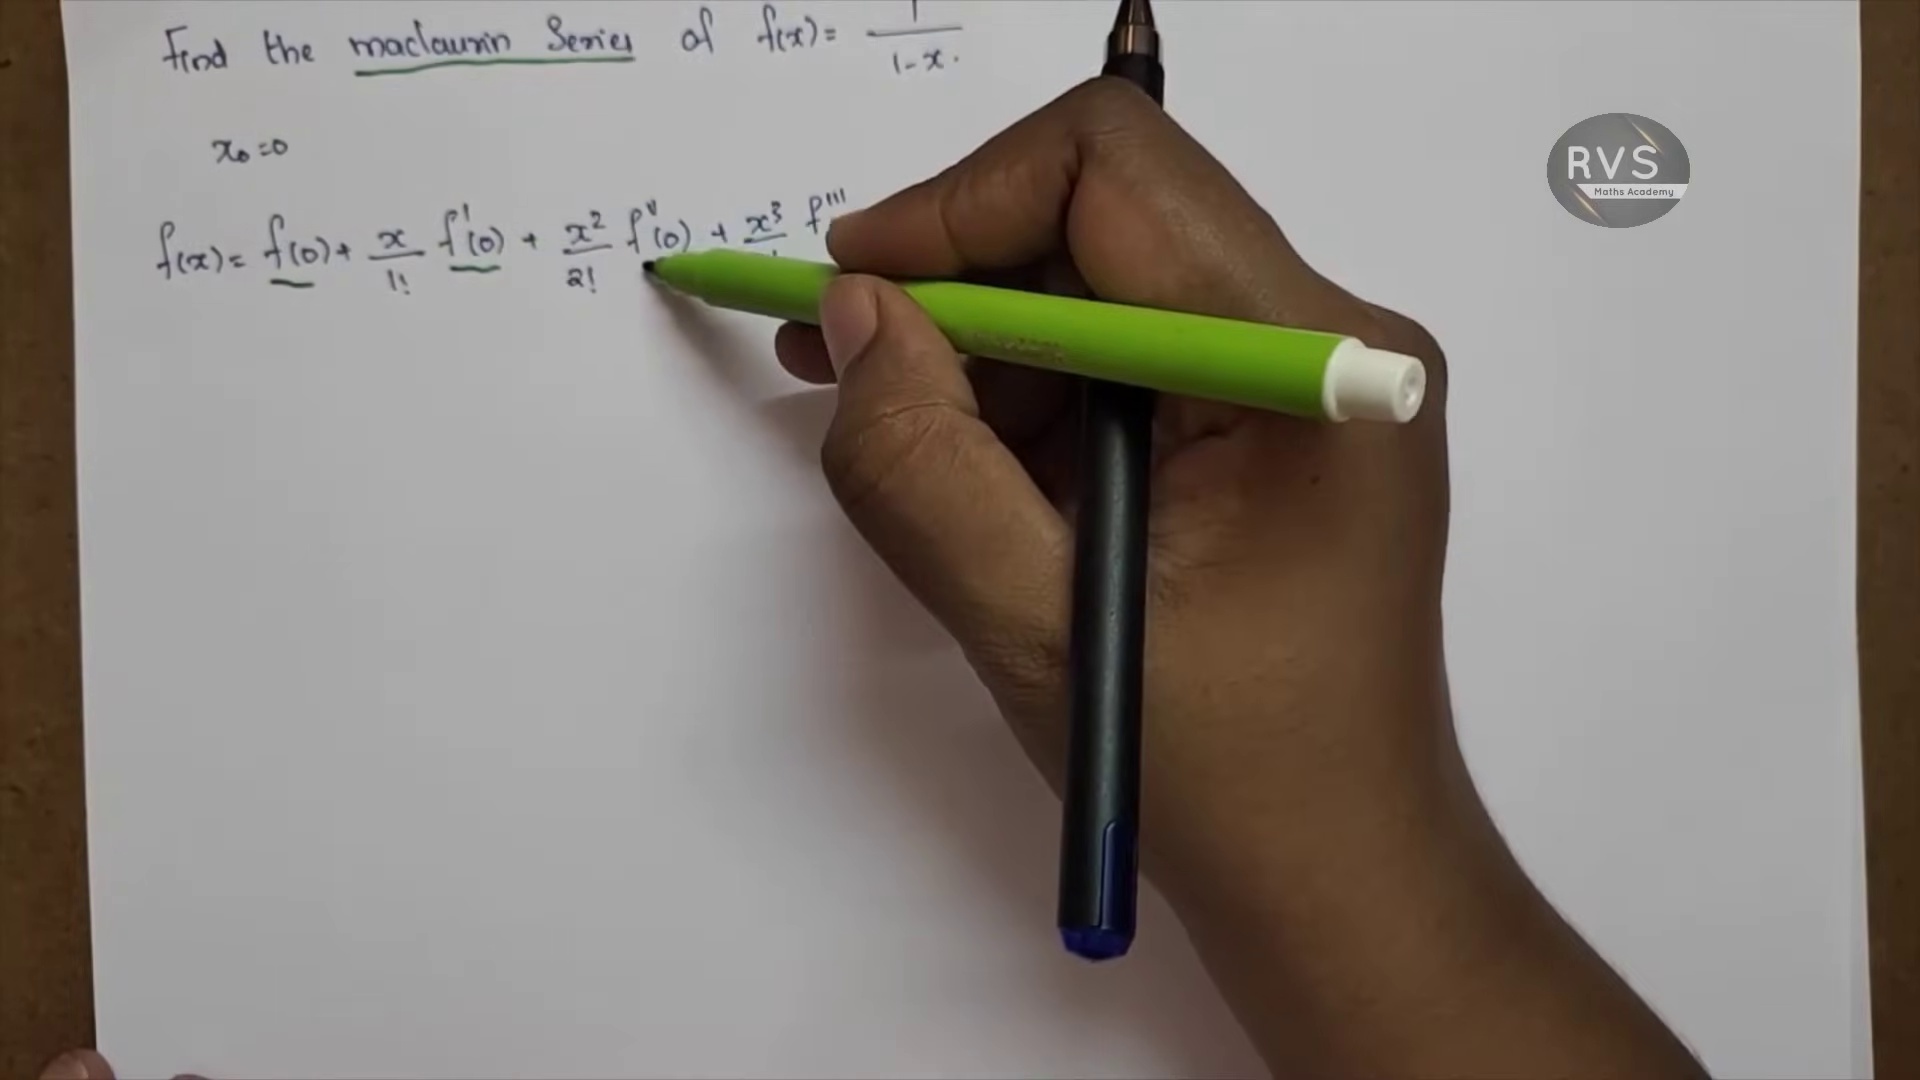 Find the maclaurin Series of f(x) = 1/(1-x).
x₀ = 0
f(x) = f(0) + x/1! f'(0) + x²/2! f''(0) + x³/ ! f'''
RVS
Maths Academy